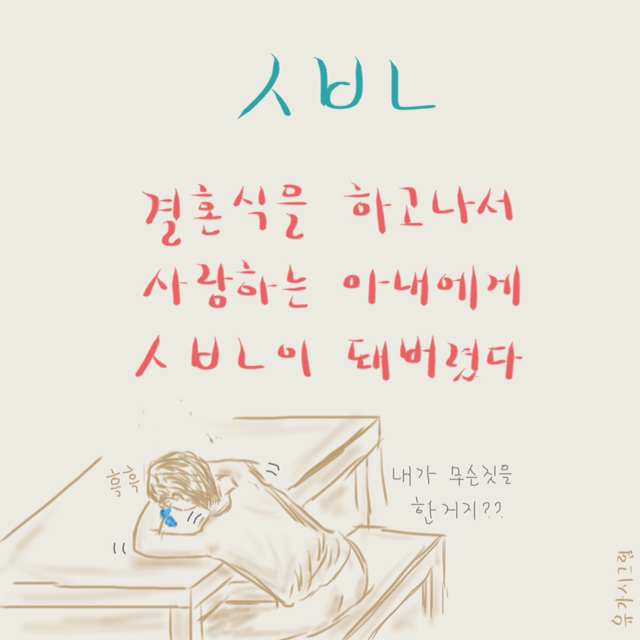 ㅅㅂㄴ
결혼식을 하고나서
사랑하는 아내에게
ㅅㅂㄴ이 돼버렸다
흑흑
내가 무슨짓을
한거지??